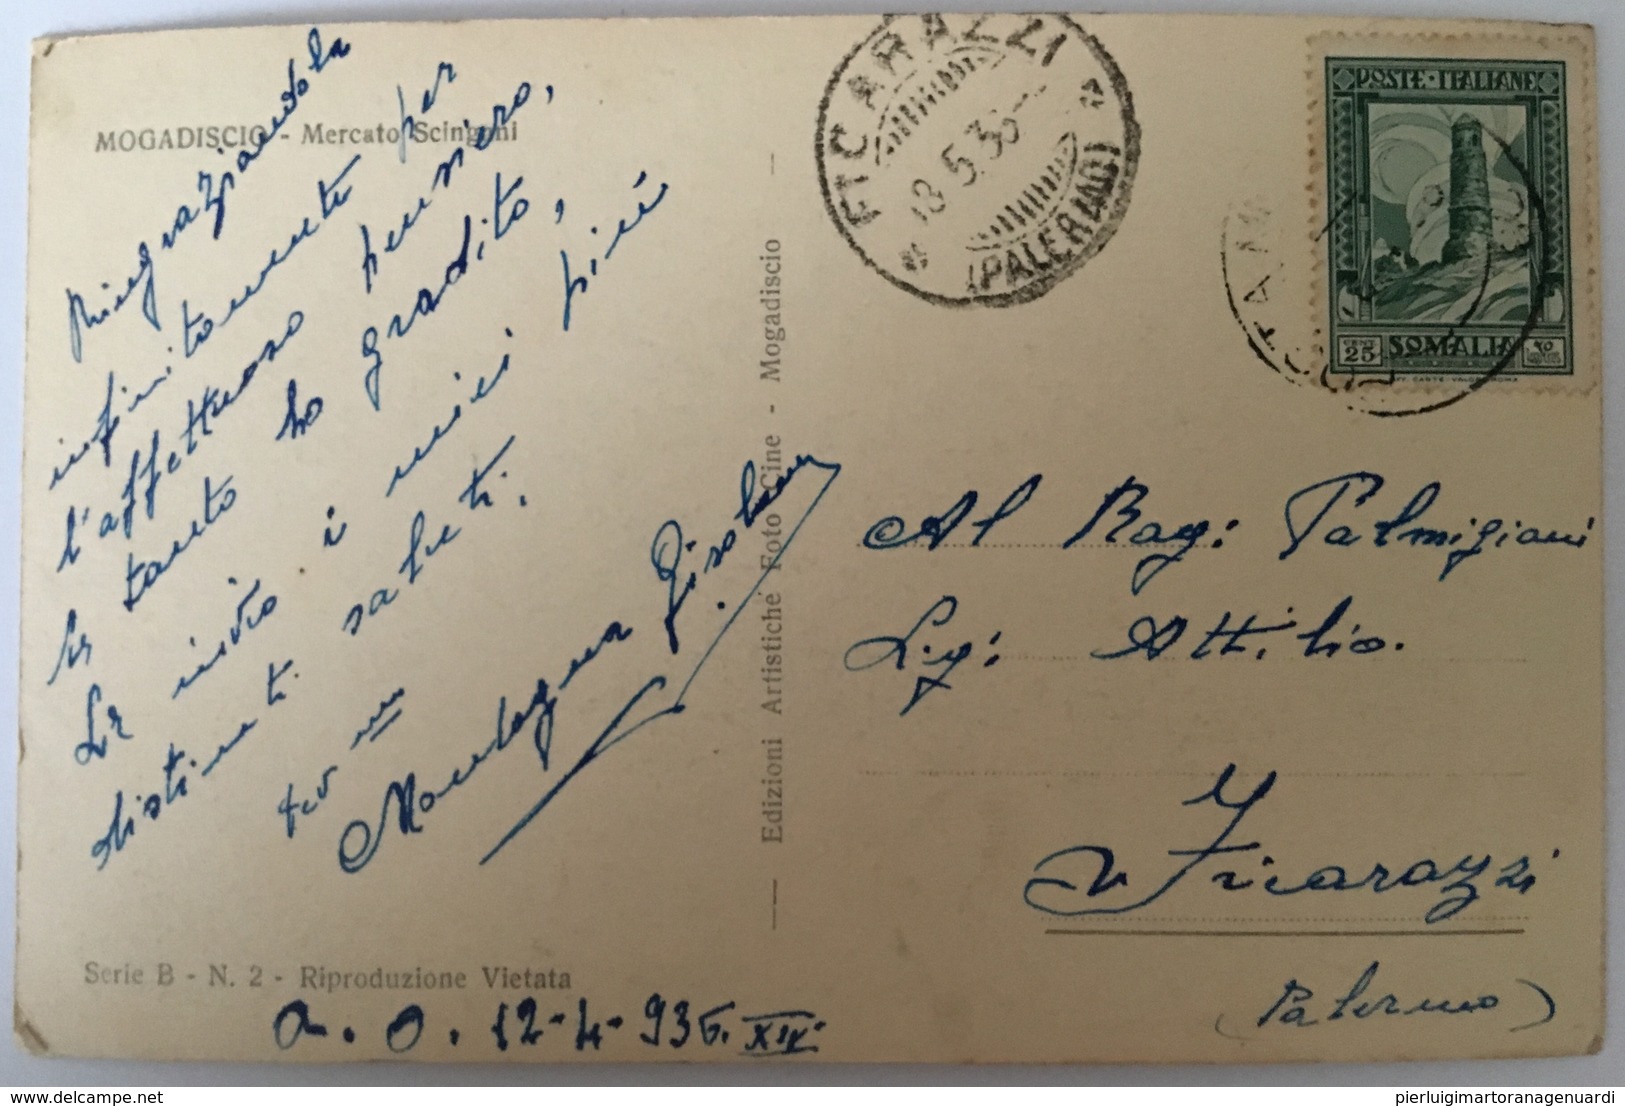 MOGADISCIO - Mercato Scingani
Ringraziandola
infinitamente per
l'affettuoso pensiero,
da tanto ho gradito,
Le invio i miei più
distinti saluti.
Montagna
Edizioni Artistiche Foto Cine - Mogadiscio
Serie B - N. 2 - Riproduzione Vietata
A. O. 12-4-936. XIV.
FICARAZZI
8.5.36
(PALERMO)
POSTE·ITALIANE
CENT 25 SOMALIA
Al Rag: Palmigiani
Attilio.
Ficarazzi
(Palermo)
pierluigimartoranagenuardi